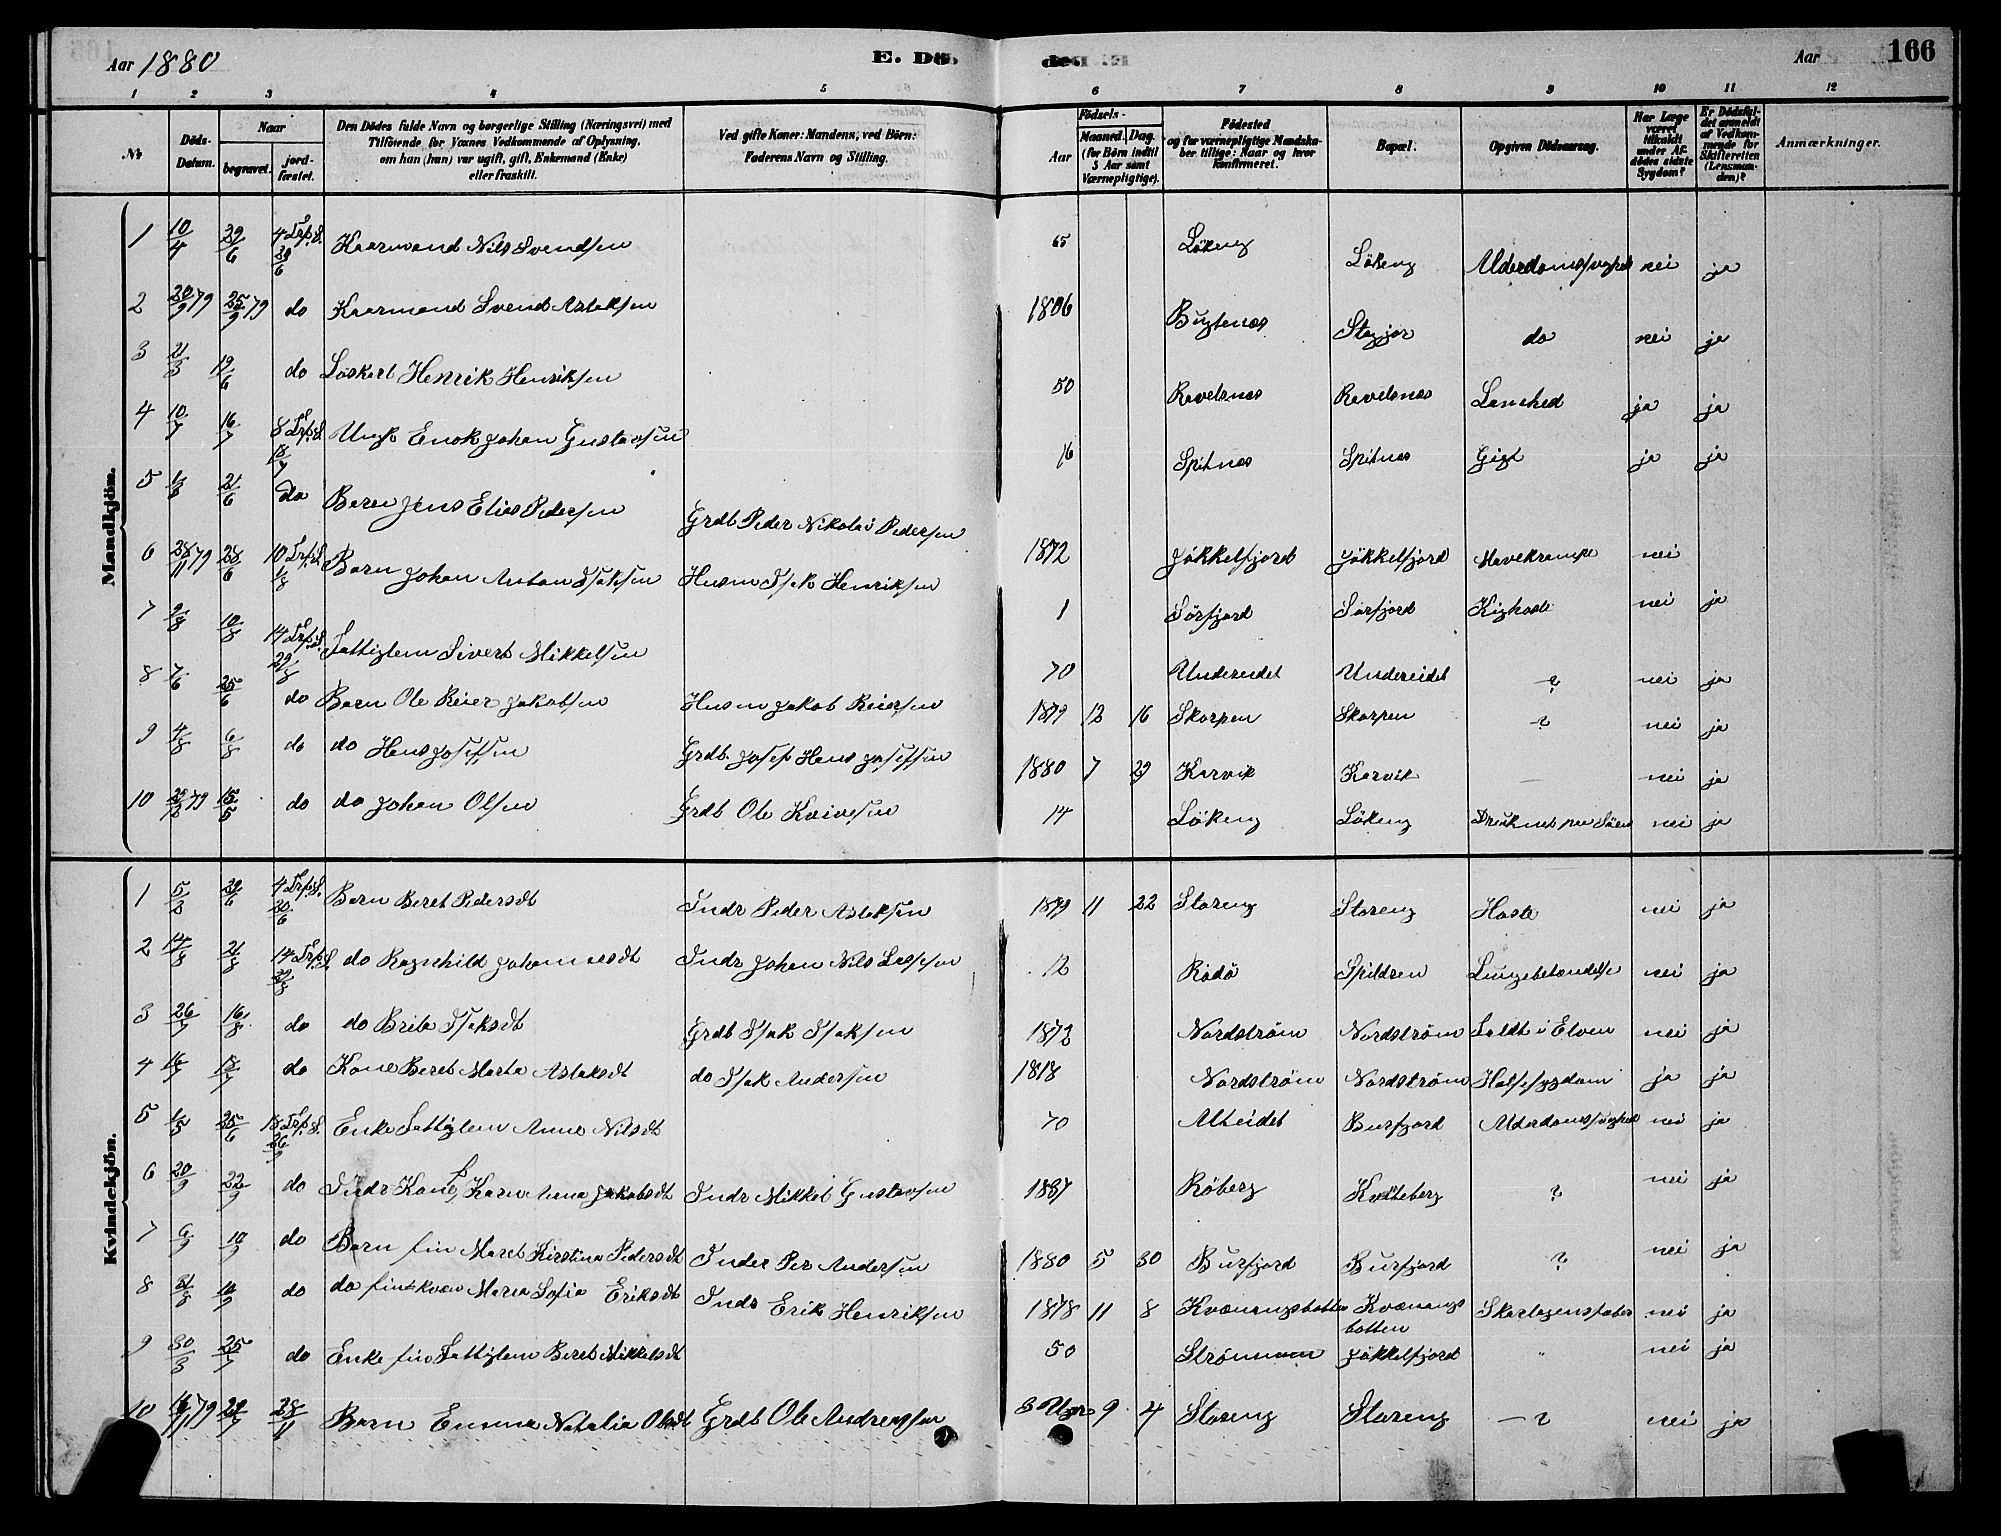 Aar 1880 E. Dö- des. Aar 166
1 2 3 4 5 6 7 8 9 10 11 12
No Döds-Datum. Naar begravet. jord-fæstet. Den Dödes fulde Navn og borgerlige Stilling (Næringsvei) med Tilföiende for Voxnes Vedkommende af Oplysning, om han (hun) var ugift, gift, Enkemand (Enke) eller fraskilt. Ved gifte Koner: Mandens, ved Börn: Faderens Navn og Stilling. Födsels- Aar Maaned. Dag. (for Börn indtil 5 Aar samt Værnepligtige). Födested og for værnepligtige Mandskaber tillige: Naar og hvor konfirmeret. Bopæl. Opgiven Dödsaarsag. Har Læge været tilkaldt under Afdödes sidste Sygdom? Er Dödsfaldet anmeldt af Vedkommende for Skifteretten (Lensmanden)? Anmærkninger.
Mandkjön.
1 10/4 29/6 4 Trp. S. 20/6 Kaarmand Nils Svendsen 65 Løkeng Løkeng Alderdomssvaghed nei ja
2 20/9 79 25/9 79 do Kaarmand Svend Aslaksen 1806 Bugtenæs Stajjor do nei ja
3 21/3 19/6 do Løskarl Henrik Henriksen 50 Ravelsnæs Ravelsnæs Lamhed ja ja
4 10/7 16/7 8 Trp. S. 18/7 Ungk Enok Johan Gustavsen 16 Spitnæs Spitnæs Gigt ja ja
5 1/3 21/6 do Barn Jens Elias Pedersen Grdb Peder Nikolai Pedersen 1872 Jøkkelfjord Jøkkelfjord Mavekrampe nei
6 28/11 79 28/6 10 Trp. S. 1/8 Barn Johan Anton Isaksen Husm Isak Henriksen 1 Sørfjord Sørfjord Kighoste nei ja
7 2/8 10/8 14 Trp. S. 29/8 Fattiglem Sivert Mikkelsen 70 Undereidet Undereidet ? nei ja
8 7/6 25/6 do Barn Ole Reier Jakobsen Husm Jakob Reiersen 1879 12 16 Skorpen Skorpen ? nei ja
9 4/8 6/8 do do Hans Josefsen Grdb. Josef Hans Josefsen 1880 7 29 Karvik Karvik — nei ja
10 79 15/5 do do Johan Olsen Grdb Ole Kvivesen 14 Løkeng Løkeng Druknet paa Søen nei ja
Kvindekjön.
1 5/2 29/6 4 Trp. S. 20/6 Barn Beret Pedersdt Indr Peder Aslaksen 1879 11 22 Storeng Storeng Hoste nei ja
2 14/8 21/8 14 Trp. S. 29/8 do Ragnhild Johannesdt Indr Johan Nils Lassesen 12 Rødø Spildren Lungebetændelse nei ja
3 26/7 16/8 do do Brita Isaksdt Grdb Isak Isaksen 1872 Nordstrøm Nordstrøm Faldt i Elven nei ja
4 16/7 18/7 do Kone Beret Marta Aslaksdt do Isak Andersen 1818 Nordstrøm Nordstrøm Halssygdom ja ja
5 1/5 25/6 18 Trp. S. 26/9 Enke Fattiglem Anne Nilsdt 70 Alteidet Burfjord Alderdomssvaghed nei ja
6 20/9 22/9 do Indr Kone Karen Anna Jakobsdt Indr Mikkel Gustavsen 1837 Røberg Kvitteberg ? nei ja
7 6/9 10/9 do Barn fin Maret Kirstina Pedersdt Inder Per Andersen 1880 5 30 Burfjord Burfjord ? nei ja
8 31/8 10/9 do do fin kvæn Maria Sofia Eriksdt Indr Erik Henriksen 1878 11 8 Kvænangsbotten Kvænangsbotten Skarlagensfeber nei ja
9 30/3 25/7 do Enke fin Fattiglem Beret Mikkelsdt 50 Strømmen Jøkkelfjord " nei ja
10 16/11 79 29/7 28/11 Barn Emma Natalia Olsdt Grdb Ole Andreassen 3 Uger 9 4 Storeng Storeng — ? nei ja